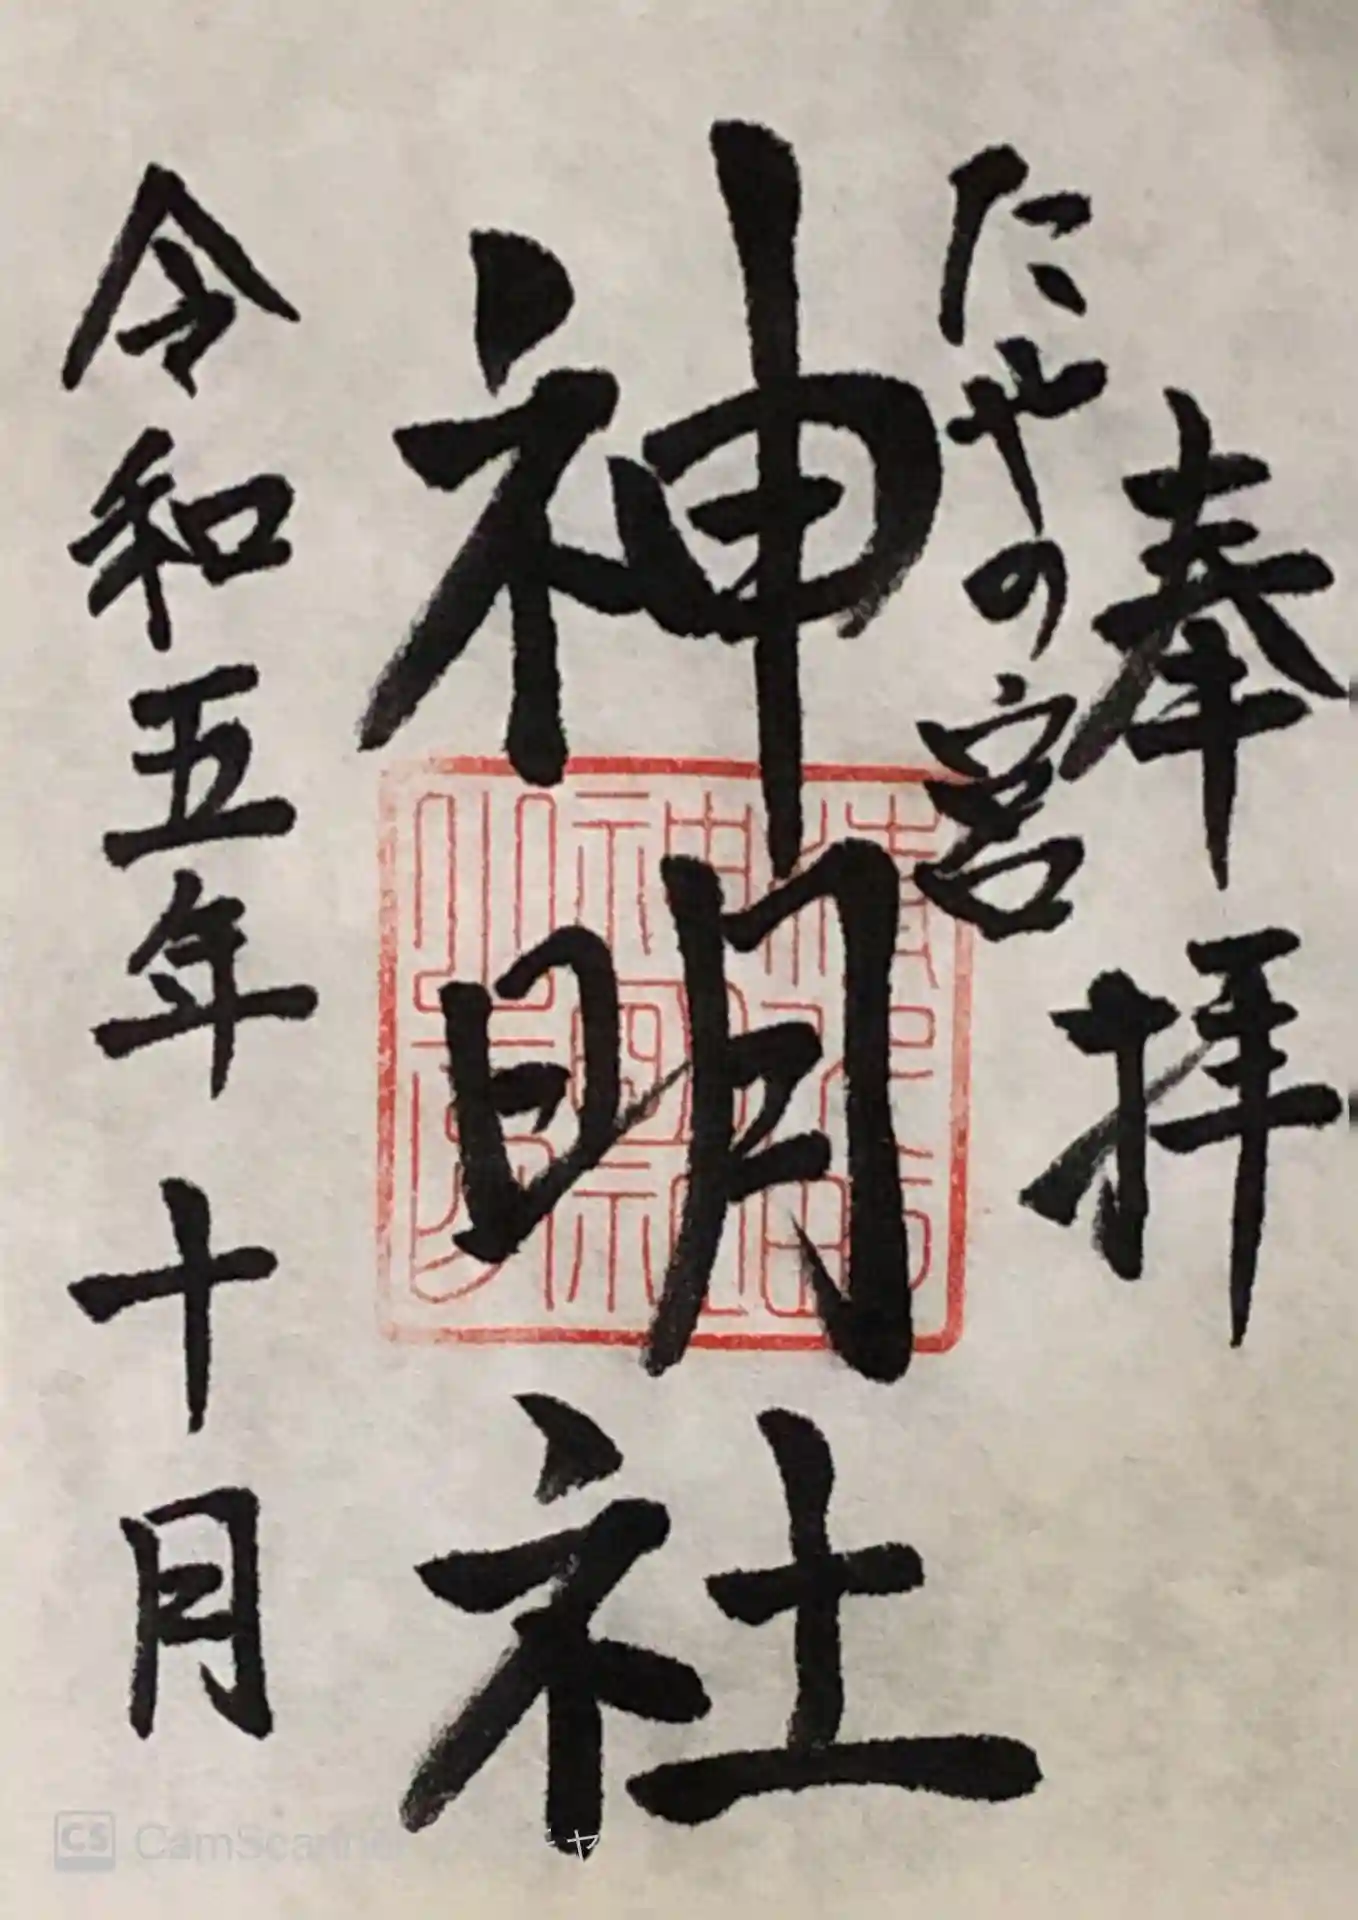 奉拝
たやの宮
神明社
令和五年十月
CS CamScanner